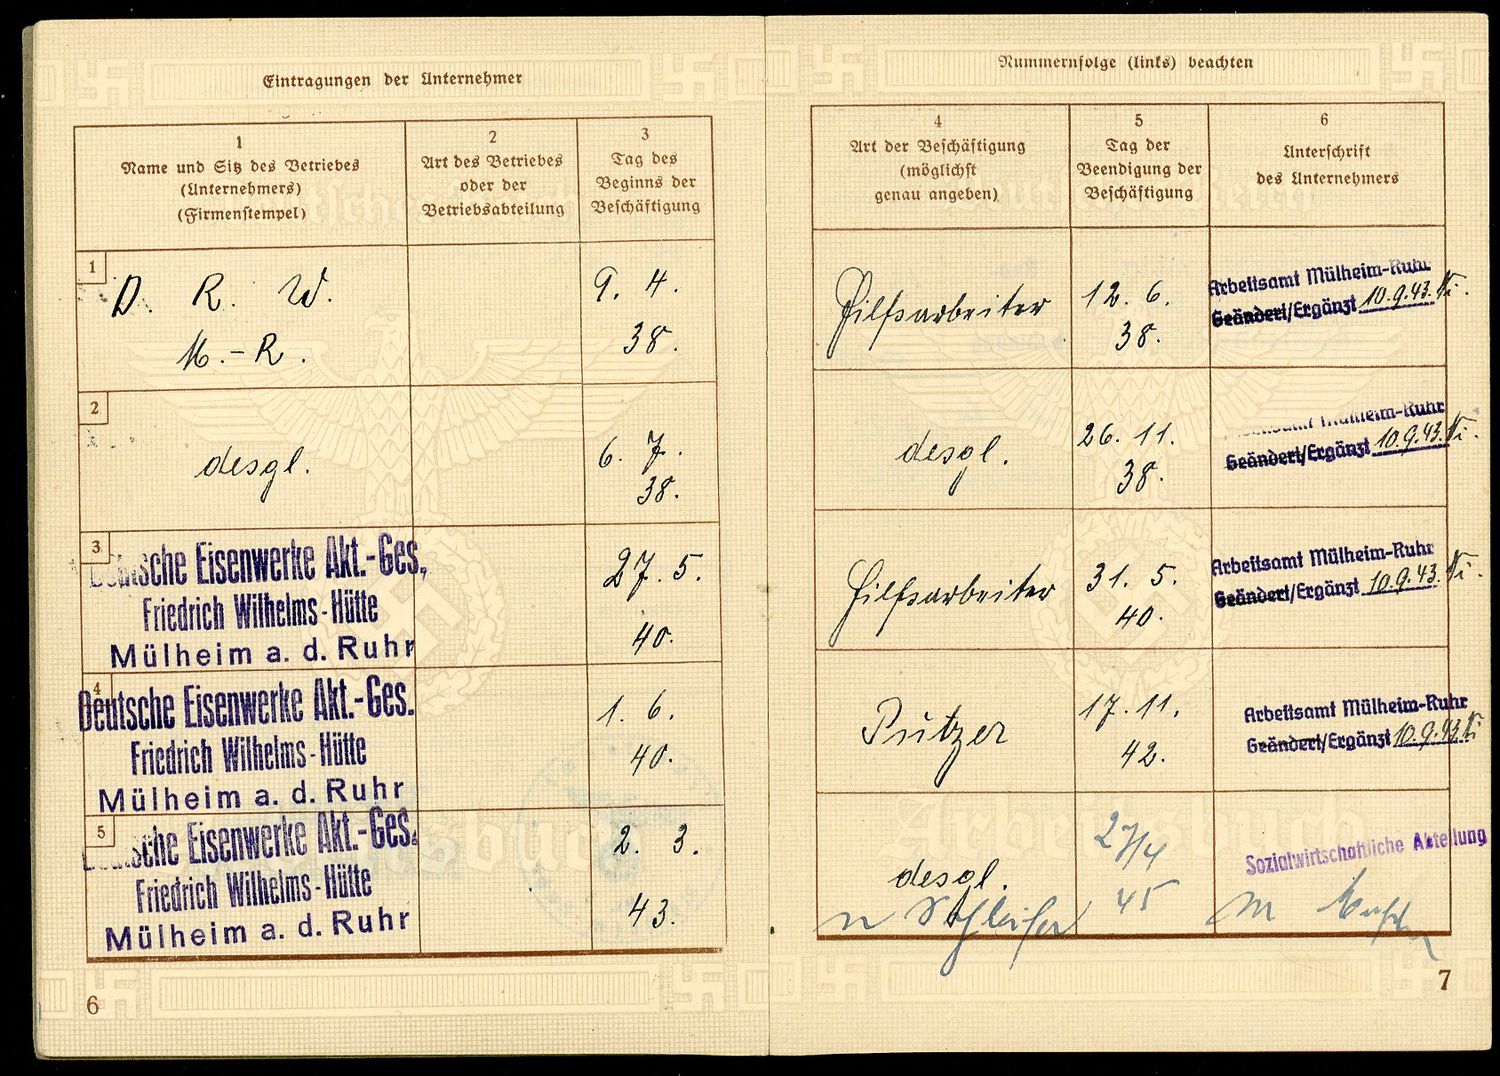 Eintragungen der Unternehmer
1
Name und Sitz des Betriebes
(Unternehmers)
(Firmenstempel)
2
Art des Betriebes
oder der
Betriebsabteilung
3
Tag des
Beginns der
Beschäftigung
1
D. R. W.
M.-R.
9. 4.
38.
2
desgl.
6. 7.
38.
3
Deutsche Eisenwerke Akt.-Ges.,
Friedrich Wilhelms-Hütte
Mülheim a. d. Ruhr
27. 5.
40.
4
Deutsche Eisenwerke Akt.-Ges.
Friedrich Wilhelms-Hütte
Mülheim a. d. Ruhr
1. 6.
40.
5
Deutsche Eisenwerke Akt.-Ges.
Friedrich Wilhelms-Hütte
Mülheim a. d. Ruhr
2. 3.
43.
6
Nummernfolge (links) beachten
4
Art der Beschäftigung
(möglichst
genau angeben)
5
Tag der
Beendigung der
Beschäftigung
6
Unterschrift
des Unternehmers
Hilfsarbeiter
12. 6.
38.
Arbeitsamt Mülheim-Ruhr
Geändert/Ergänzt 10.9.43. Ni.
desgl.
26. 11.
38.
Arbeitsamt Mülheim-Ruhr
Geändert/Ergänzt 10.9.43. Ni.
Hilfsarbeiter
31. 5.
40.
Arbeitsamt Mülheim-Ruhr
Geändert/Ergänzt 10.9.43. Ni.
Putzer
17. 11.
42.
Arbeitsamt Mülheim-Ruhr
Geändert/Ergänzt 10.9.43 Ni
desgl.
u Schleifer
27/4
45
Sozialwirtschaftliche Abteilung
7